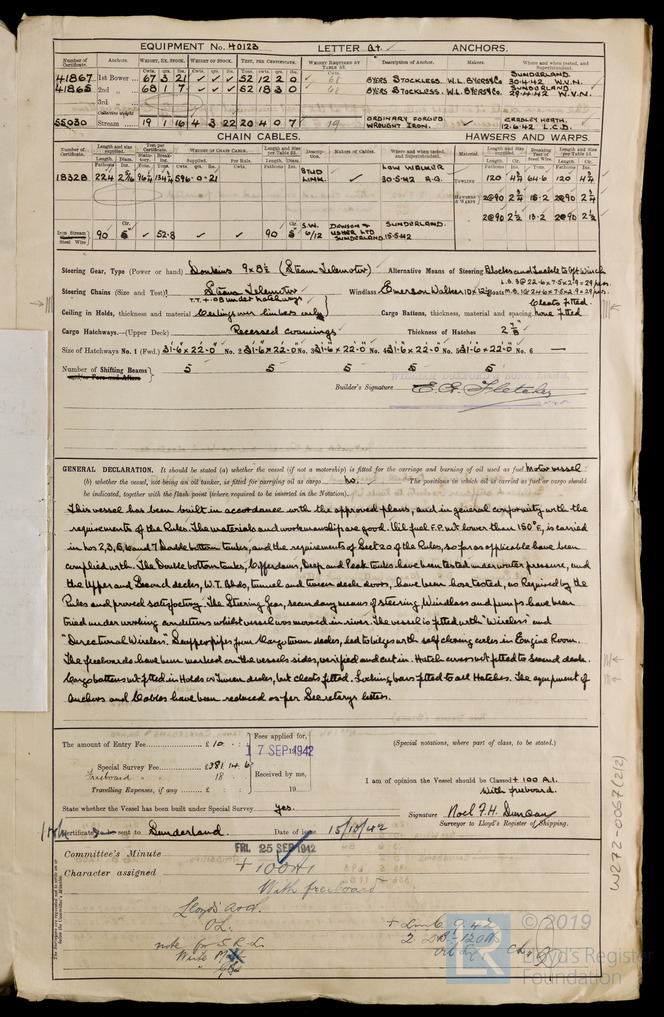 EQUIPMENT No. 40123 LETTER at. ANCHORS.
Number of Certificate. Anchors. WEIGHT, EX. STOCK. WEIGHT OF STOCK. TEST, PER CERTIFICATE. WEIGHT REQUIRED BY TABLE 53. Description of Anchor. Makers. Where and when tested, and Superintendent.
Cwts. qrs. lbs.
41867 1st Bower 67 3 21 ✓ ✓ ✓ 52 12 2 0 68 BYERS STOCKLESS. W.L. BYERS & Co. SUNDERLAND. 30.4.42 W.V.N.
41865 2nd „ 68 1 7 ✓ ✓ ✓ 52 18 3 0 68 BYERS STOCKLESS. W.L. BYERS & Co. SUNDERLAND. 29.4.42 W.V.N.
3rd
Collective weight
55030 Stream 19 1 16 4 3 22 20 4 0 7 19 ORDINARY FORGED WROUGHT IRON. CRADLEY HEATH. 12.6.42 L.C.D.
CHAIN CABLES. HAWSERS AND WARPS.
18328 224 596-0-21 STUD LINK. ✓ LOW WALKER 30.5.42 A.G.
TOWLING 120 4¾ 64.6 120 4¾
HAWSERS & WARPS 2@90 2¾ 15.2 2@90 2¾
2@90 2½ 13.2 2@90 2½
Iron Stream Steel Wire 90 5" ✓ 52.8 ✓ ✓ 90 5" S.W. 6/12 DAWSON & USHER LTD SUNDERLAND SUNDERLAND. 15.5.42
Steering Gear, Type (Power or hand) Donkins 9 x 8½ (Steam Telemotor) Alternative Means of Steering Blocks and Tackle to Aft Winch
Steering Chains (Size and Test) Steam Telemotor Windlass Emerson Walker 10 x 12 Boats
T.T. + .08 under hatchways
Ceiling in Holds, thickness and material Ceiling over limbers only Cargo Battens, thickness, material and spacing none fitted
Cleats fitted.
Cargo Hatchways.—(Upper Deck) Recessed coamings Thickness of Hatches 2⅞"
Size of Hatchways No. 1 (Fwd.) 31'-6" x 22'-0" No. 2 31'-6" x 22'-0" No. 3 31'-6" x 22'-0" No. 4 31'-6" x 22'-0" No. 5 31'-6" x 22'-0" No. 6 —
Number of Shifting Beams and/or Fore and Afters 5 5 5 5 5
Builder's Signature E. G. Fletcher
GENERAL DECLARATION. It should be stated (a) whether the vessel (if not a motorship) is fitted for the carriage and burning of oil used as fuel Motor vessel
(b) whether the vessel, not being an oil tanker, is fitted for carrying oil as cargo no. The positions in which oil is carried as fuel or cargo should
be indicated, together with the flash point (where required to be inserted in the Notation).
This vessel has been built in accordance with the approved plans, and in general conformity with the
requirements of the Rules. The materials and workmanship are good. Oil fuel F.P. not lower than 150°F, is carried
in Nos 2, 3, 5, 6 and 7 Double bottom tanks, and the requirements of Sect 20 of the Rules, so far as applicable have been
complied with. The Double bottom tanks, Cofferdams, Deep and Peak tanks have been tested under water pressure, and
the Upper and Second decks, W.T. Bhds, tunnel and tween deck doors, have been hose tested, as Required by the
Rules and proved satisfactory. The Steering Gear, secondary means of steering, Windlass and pumps have been
tried under working conditions whilst vessel was moored in river. The vessel is fitted with "Wireless" and
"Directional Wireless". Scupper pipes from Cargo tween decks, led to bilges with self closing cocks in Engine Room.
The freeboards have been marked on the vessels sides, verified and cut in. Hatch covers not fitted to second deck.
Cargo battens not fitted in Holds or Tween decks, but cleats fitted. Locking bars fitted to all Hatches. The equipment of
Anchors and Cables have been reduced as per Secretarys letters.
The amount of Entry Fee £ 10 : : Fees applied for, 17 SEP 1942
(Special notations, where part of class, to be stated.)
Special Survey Fee £381 14 6
Freeboard „ 18 Received by me,
Travelling Expenses, if any £ 19
I am of opinion the Vessel should be Classed + 100 A.1.
With freeboard.
State whether the Vessel has been built under Special Survey yes.
Signature Noel F.H. Duncan
Surveyor to Lloyd's Register of Shipping.
Certificate to be sent to Sunderland. Date of issue 15/10/42
Committee's Minute FRI. 25 SEP 1942
Character assigned +100A1
With freeboard
Lloyds A & C.
O.L.
note for S.R.L.
Write
W272-0067(2/2)
© 2019
LR
Lloyd's Register
Foundation